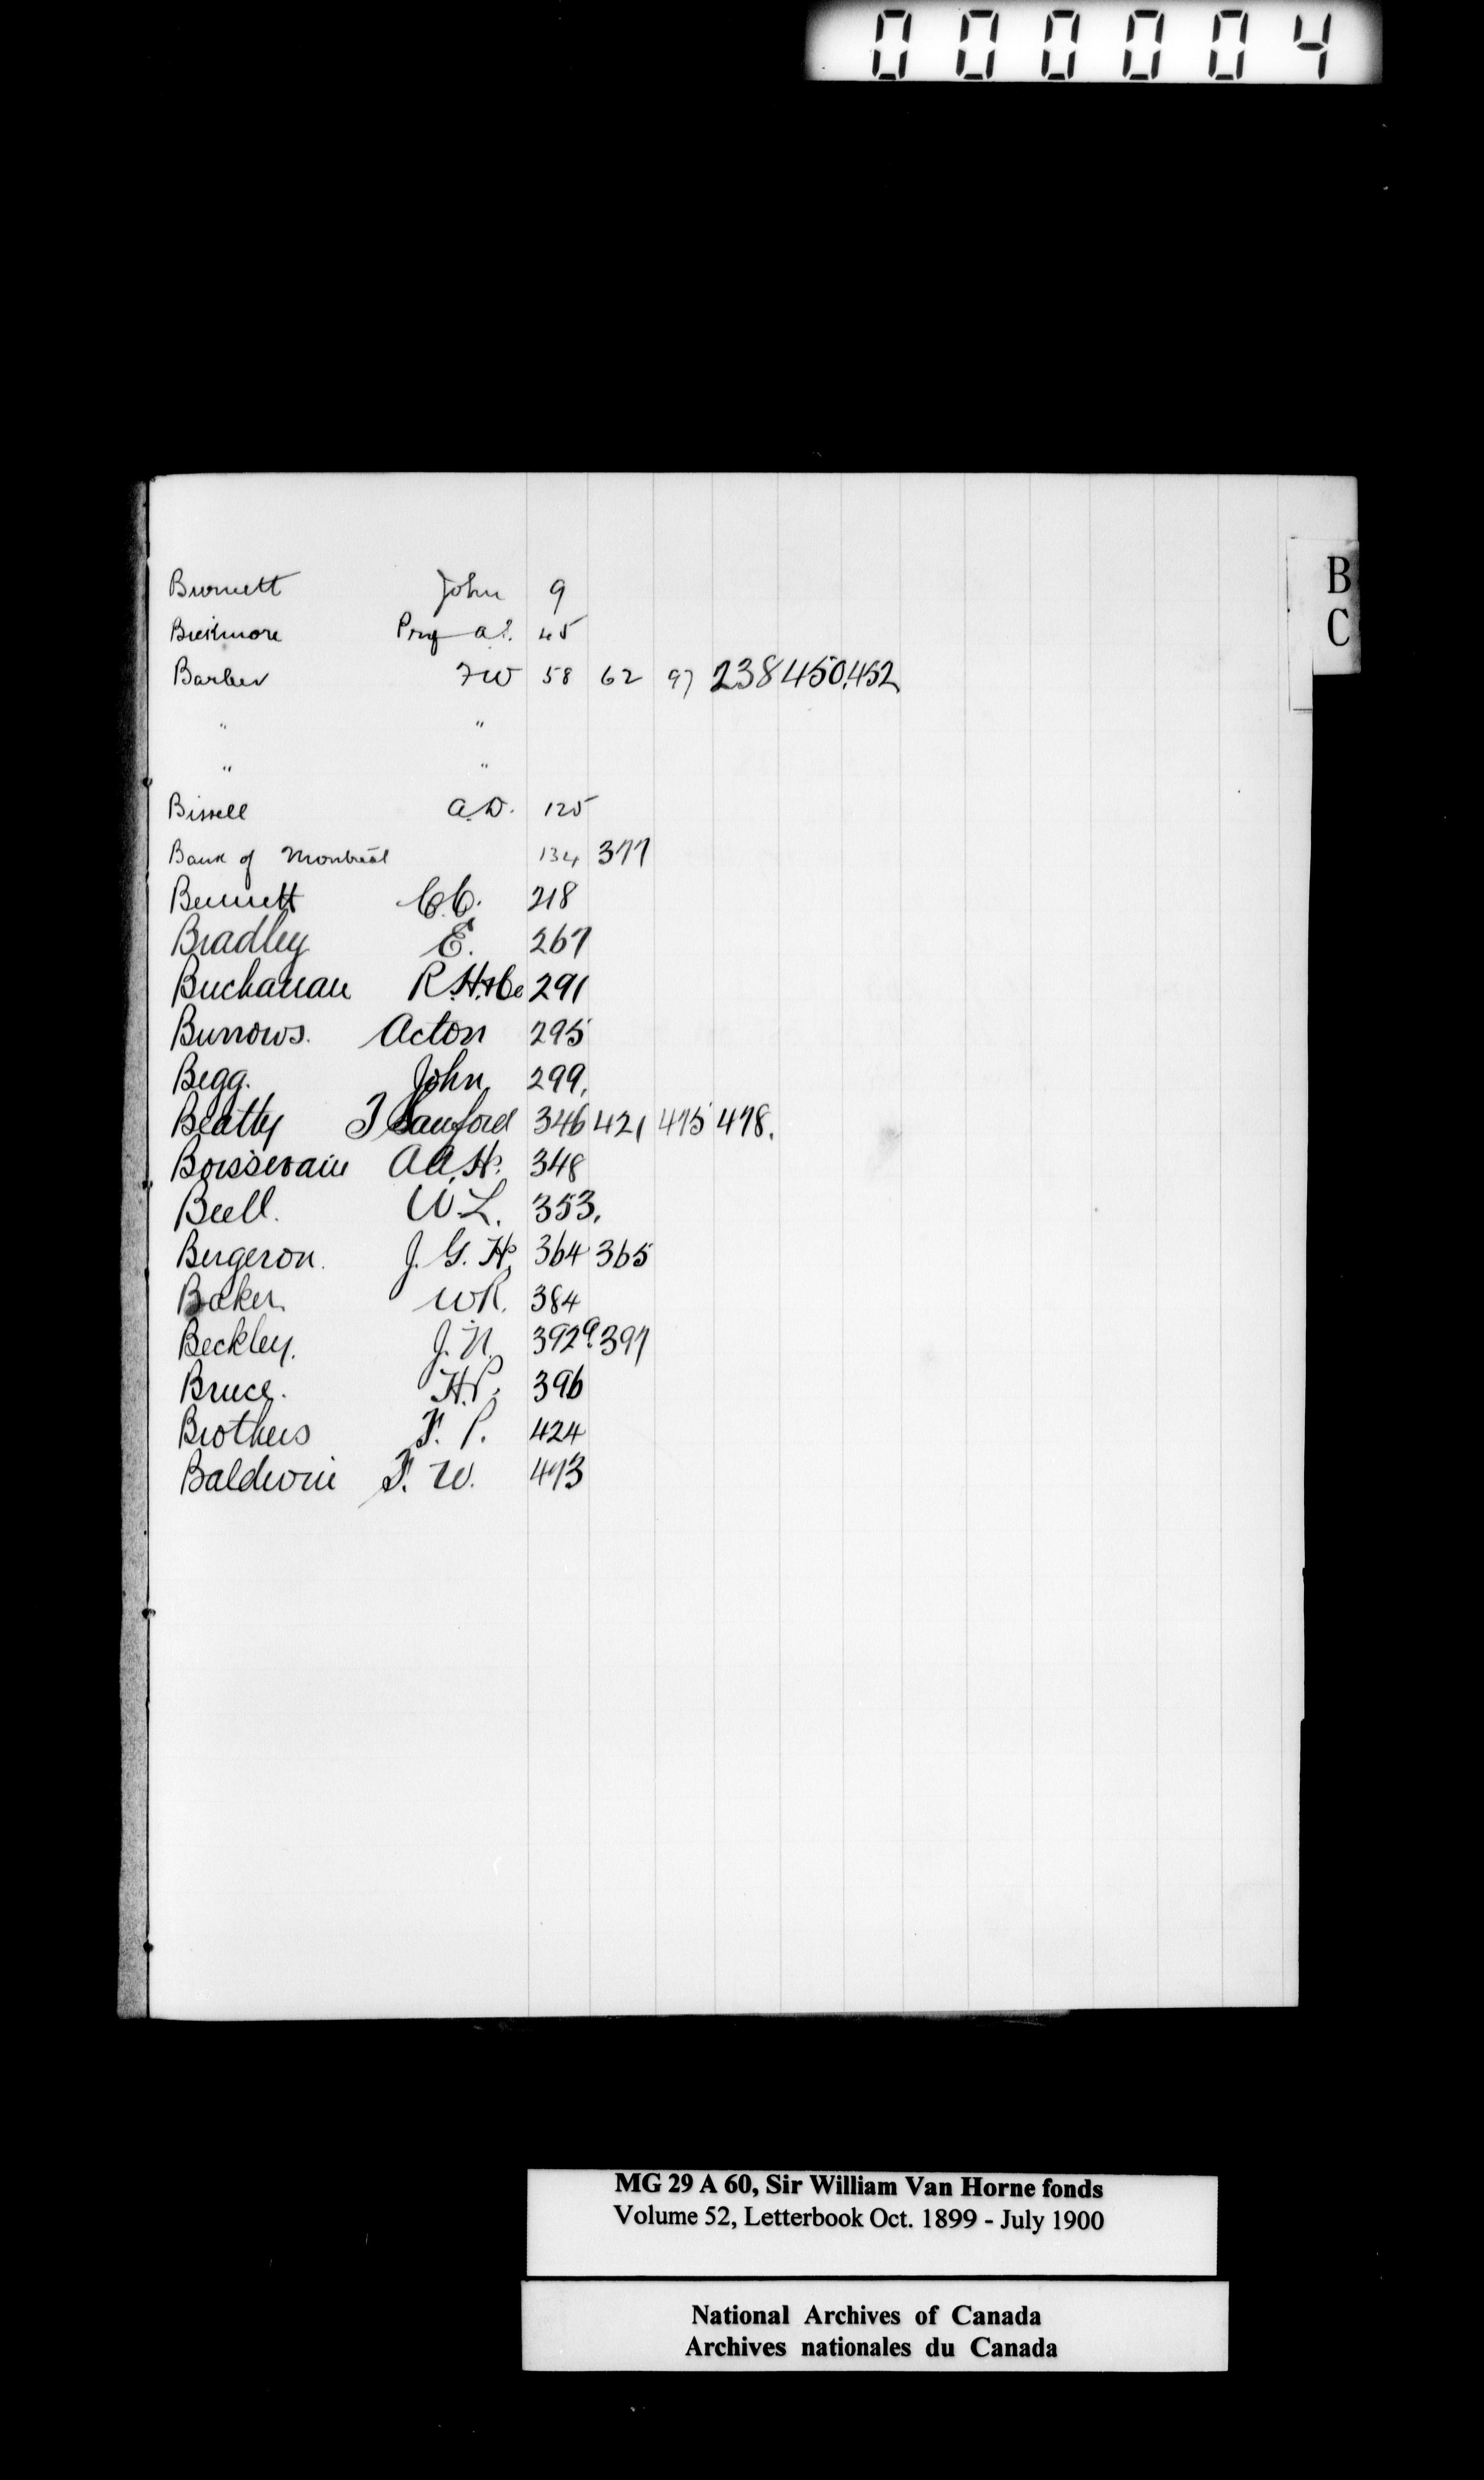 000004
B
C
Burnett John 9
Bickmore Prof a.S. 45
Barber FW 58 62 97 238 450,452
" "
" "
Bissell A.D. 125
Bank of Montreal 134 377
Bennett C.C. 218
Bradley E. 267
Buchanan R.H.&Co 291
Burrows. Acton 295
Begg. John 299.
Beatty Sanford 346 421 475 478.
Boissevain A.A.H. 348
Buell. W.L. 353.
Bergeron. J.G.H. 364 365
Baker. WR. 384
Beckley. J.N. 392a. 397
Bruce. H.P. 396
Brothers F.P. 424
Baldwin F.W. 473
MG 29 A 60, Sir William Van Horne fonds
Volume 52, Letterbook Oct. 1899 - July 1900
National Archives of Canada
Archives nationales du Canada